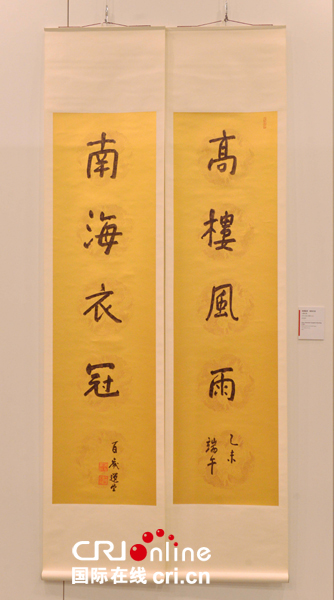 高樓風雨
乙未
端午
南海衣冠
百歲選堂
CRI online
国际在线 cri.cn